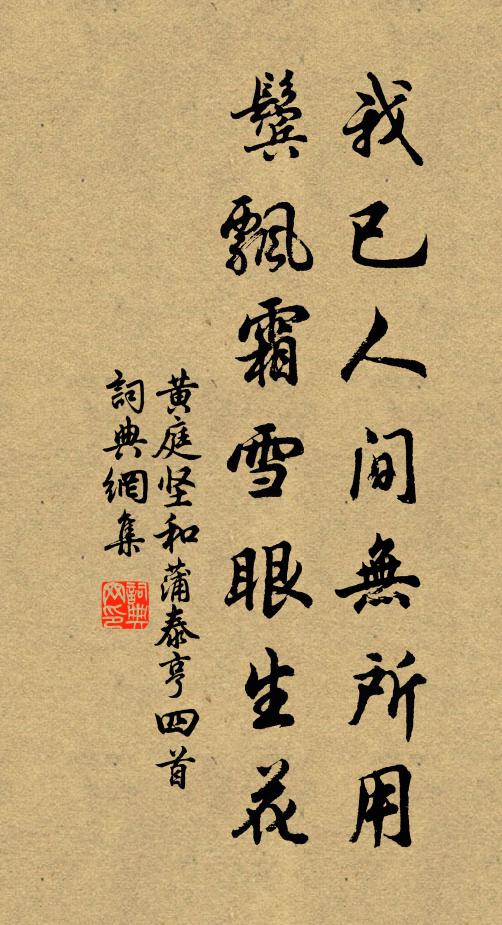 我已人间無所用
鬓飘霜雪眼生花
黄庭坚和蒲泰亨四首
詞典網集
詞典网印